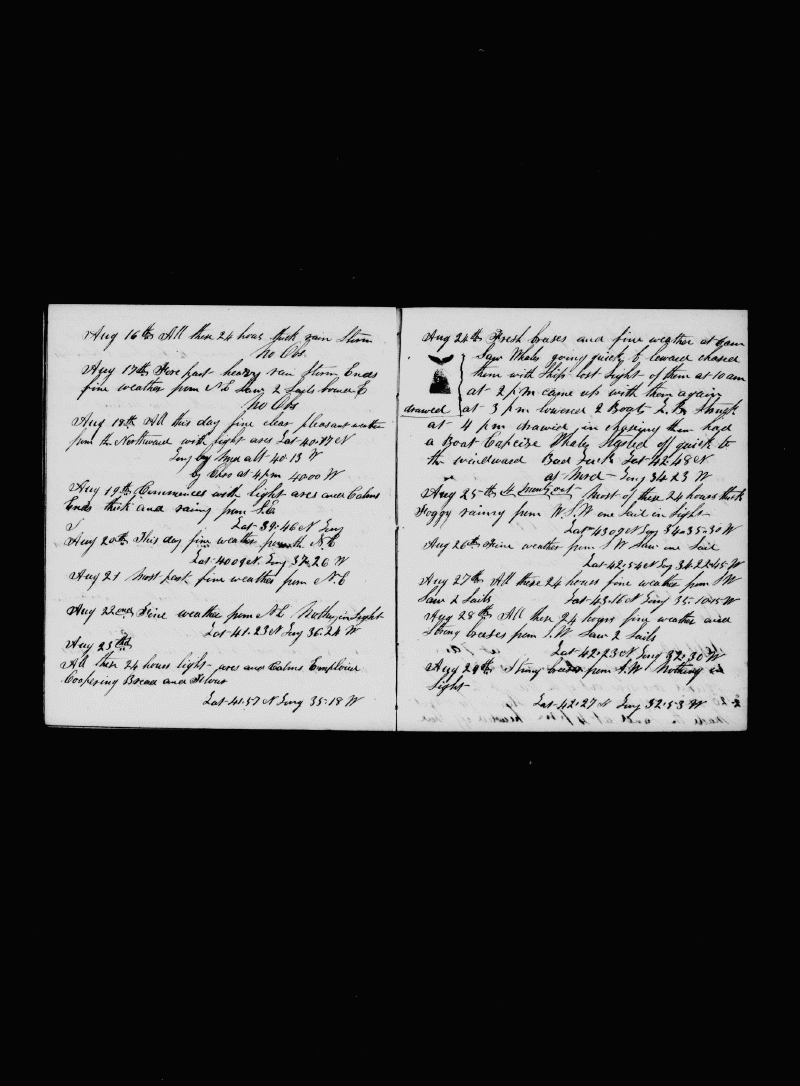 Aug 16th All these 24 hours thick rain Storm
No Obs.
Aug 17th Fore part heavy rain Storm Ends
fine weather from N E Saw 2 Sails bound E
No Obs
Aug 18th All this day fine clear pleasant weather
from the Northward with light ares Lat 40·17 N
Long by Mrd alt 40·13 W
by Chro at 4 pm 40·00 W
Aug 19th Commences with light ares and Calms
Ends thick and rainy from S.E.
Lat 39·46 N Long
Aug 20th This day fine weather from th N.E
Lat 40·09 N. Long 37·26 W
Aug 21 Most part fine weather from N.E
Aug 22end Fine weather from N.E. Nothing in Sight
Lat 41·23 N Long 36·24 W
Aug 23rd
All these 24 hours light ares and Calms Employed
Coopering Bread and Flour
Lat 41·57 N Long 35·18 W
Aug 24th Fresh breses and fine weather at 6 am
Saw Whales going quick to leward chased
them with Ship lost Sight of them at 10 am
at 2 pm came up with them again
drawed
at 3 pm lowered 2 Boats L. B. Struck
at 4 pm drawed in
a Boat Capcize Whales off quick to
the windward Bad Luck Lat 42·48 N
at Mrd Long 34 23 W
Aug 25th Most of these 24 hours thick
Foggy rainy from W.S.W one Sail in Sight
Lat 43 09 N Long 34·35·30 W
Aug 26th Fine weather from S W Saw one Sail
Lat 42·54 N Long 34 22·45 W
Aug 27th All these 24 hours fine weather from S W
Saw 2 Sails Lat 43·16 N Long 35·10·15 W
Aug 28th All these 24 hours fine weather and
Strong breses from S.W. Saw 2 Sails
Lat 42·23 N Long 32·30 W
Aug 29th Strong breses from S.W Nothing in
Sight
Lat 42·27 N Long 32·53 W